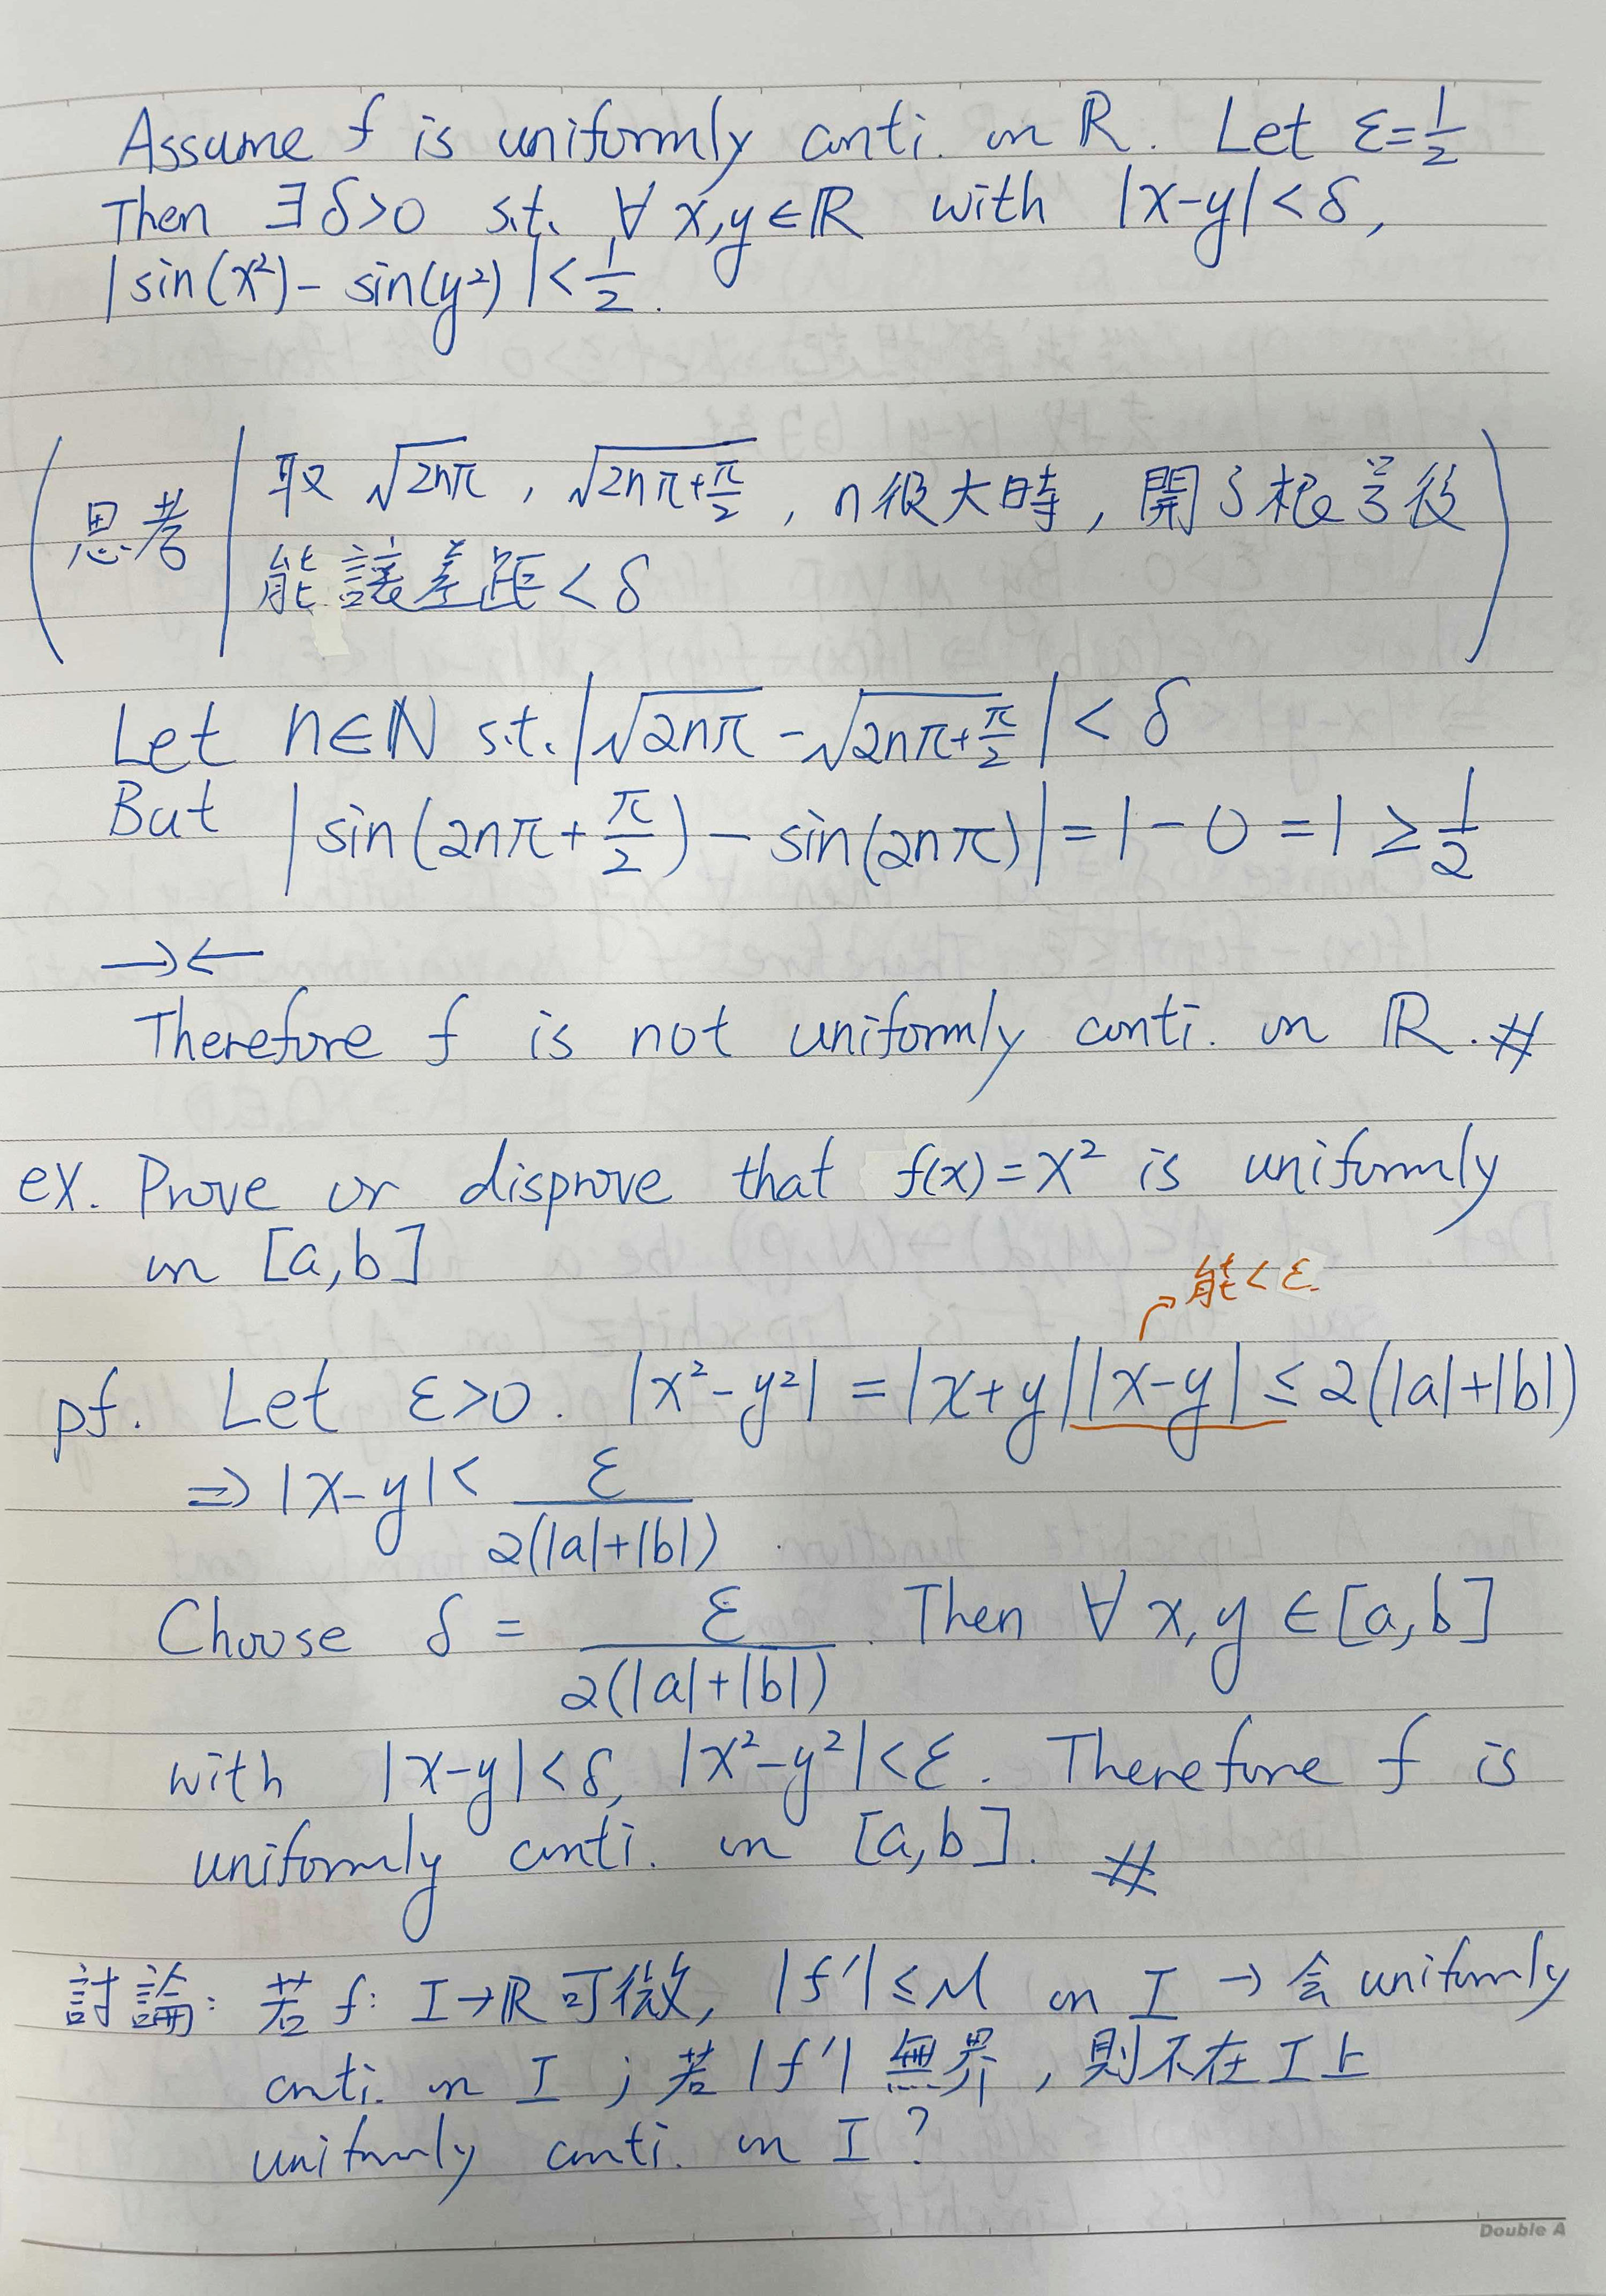 Assume f is uniformly conti. on ℝ. Let ε=1/2
Then ∃δ>0 s.t. ∀x,y∈ℝ with |x-y|<δ,
|sin(x²)- sin(y²)|<1/2.
(思考| 取 √(2nπ), √(2nπ+π/2), n很大時, 開了根号後
能讓差距<δ)
Let n∈ℕ s.t. |√(2nπ) - √(2nπ+π/2)| < δ
But |sin(2nπ+π/2) - sin(2nπ)| = 1-0 = 1 ≥ 1/2
→←
Therefore f is not uniformly conti. on ℝ. #
ex. Prove or disprove that f(x)=x² is uniformly
on [a,b]
能<ε.
pf. Let ε>0. |x²-y²| = |x+y||x-y| ≤ 2(|a|+|b|)
⇒ |x-y| < ε/(2(|a|+|b|)).
Choose δ = ε/(2(|a|+|b|)). Then ∀x,y ∈[a,b]
with |x-y|<δ, |x²-y²|<ε. Therefore f is
uniformly conti. on [a,b]. #
討論: 若 f: I→ℝ可微, |f'|≤M on I → 会 uniformly
conti. on I ; 若 |f'| 無界, 則不在I上
uniformly conti. on I ?
Double A